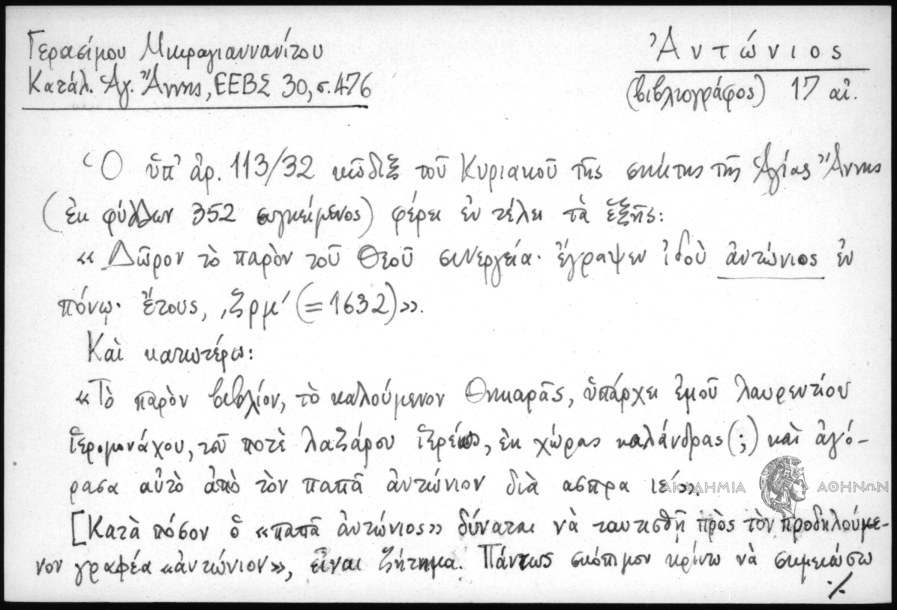 Γερασίμου Μικραγιαννανίτου
Κατάλ. Ἁγ. Ἄννης, ΕΕΒΣ 30, σ. 476
Ἀντώνιος
(βιβλιογράφος) 17 αἰ.
Ὁ ὑπ' ἀρ. 113/32 κῶδιξ τοῦ Κυριακοῦ τῆς σκήτης τῆς Ἁγίας Ἄννης
(ἐκ φύλλων 352 συγκείμενος) φέρει ἐν τέλει τὰ ἑξῆς:
« Δῶρον τὸ παρὸν τοῦ Θεοῦ συνεργεία· ἔγραψεν ἰδοὺ ἀντώνιος ἐν
πόνῳ· ἔτους, ͵ζρμ' (= 1632)».
Καὶ κατωτέρω:
«Τὸ παρὸν βιβλίον, τὸ καλούμενον Θηκαρᾶς, ὑπάρχει ἐμοῦ λαυρεντίου
ἱερομονάχου, τοῦ ποτὲ λαζάρου ἱερέως, ἐκ χώρας καλάνδρας (;) καὶ ἀγό-
ρασα αὐτὸ ἀπὸ τὸν παπᾶ ἀντώνιον διὰ ασπρα ιέ».
ΑΚΑΔΗΜΙΑ ΑΘΗΝΩΝ
[Κατὰ πόσον ὁ «παπᾶ ἀντώνιος» δύναται νὰ ταυτισθῇ πρὸς τὸν προδηλούμε-
νον γραφέα «ἀντώνιον», εἶναι ζήτημα. Πάντως σκόπιμον κρίνω νὰ σημειώσω
./.